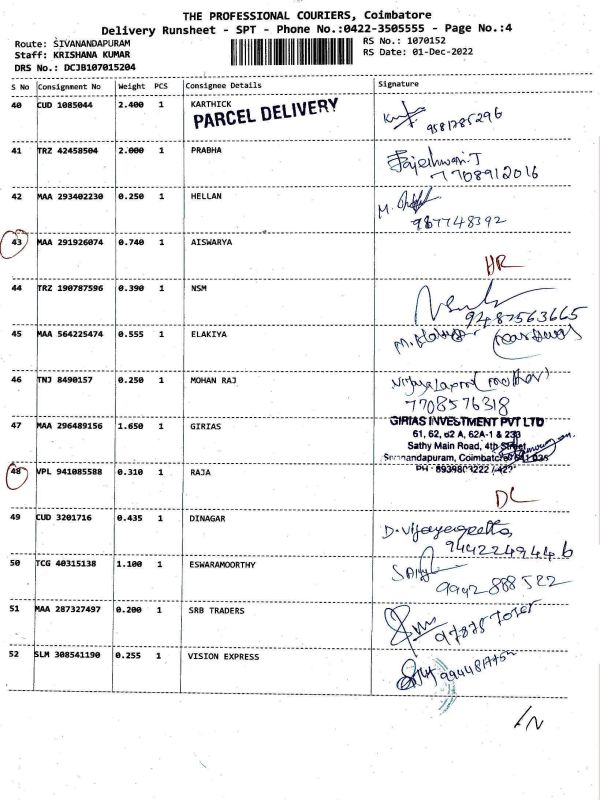 THE PROFESSIONAL COURIERS, Coimbatore
Delivery Runsheet - SPT - Phone No.:0422-3505555 - Page No.:4
Route: SIVANANDAPURAM RS No.: 1070152
Staff: KRISHANA KUMAR RS Date: 01-Dec-2022
DRS No.: DCJB107015204
S No Consignment No Weight PCS Consignee Details Signature
40 CUD 1085044 2.400 1 KARTHICK
PARCEL DELIVERY
9581785296
41 TRZ 42458504 2.000 1 PRABHA
Rajeshwari.T
7708912016
42 MAA 293402230 0.250 1 HELLAN
M.
987748392
43 MAA 291926074 0.740 1 AISWARYA
HR
44 TRZ 190787596 0.390 1 NSM
9487563665
45 MAA 564225474 0.555 1 ELAKIYA
46 TNJ 8490157 0.250 1 MOHAN RAJ
(mother)
7708576318
47 MAA 296489156 1.650 1 GIRIAS
GIRIAS INVESTMENT PVT LTD
61, 62, 62 A, 62A-1 & 233
Sathy Main Road, 4th Street
Sivanandapuram, Coimbatore
48 VPL 941085588 0.310 1 RAJA
DL
49 CUD 3201716 0.435 1 DINAGAR
D. Vijayageetha,
9442249446
50 TCG 40315138 1.100 1 ESWARAMOORTHY
9942888522
51 MAA 287327497 0.200 1 SRB TRADERS
52 SLM 308541190 0.255 1 VISION EXPRESS